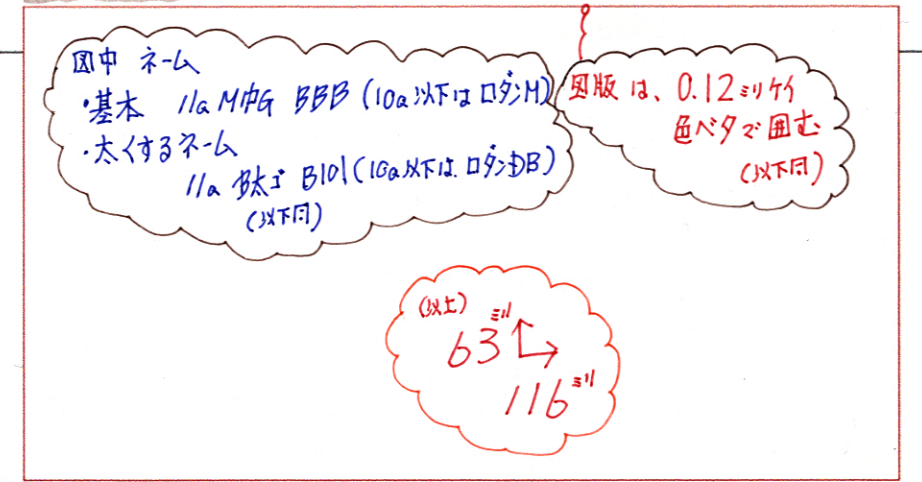 図中 ネーム
・基本 11a M中G BBB (10a以下はロダンM)
・太くするネーム
11a B太ゴ B101(10a以下は、ロダンDB)
(以下同)
図版は、0.12ミリケイ
色ベタで囲む
(以下同)
(以上)
63ミリ
116ミリ